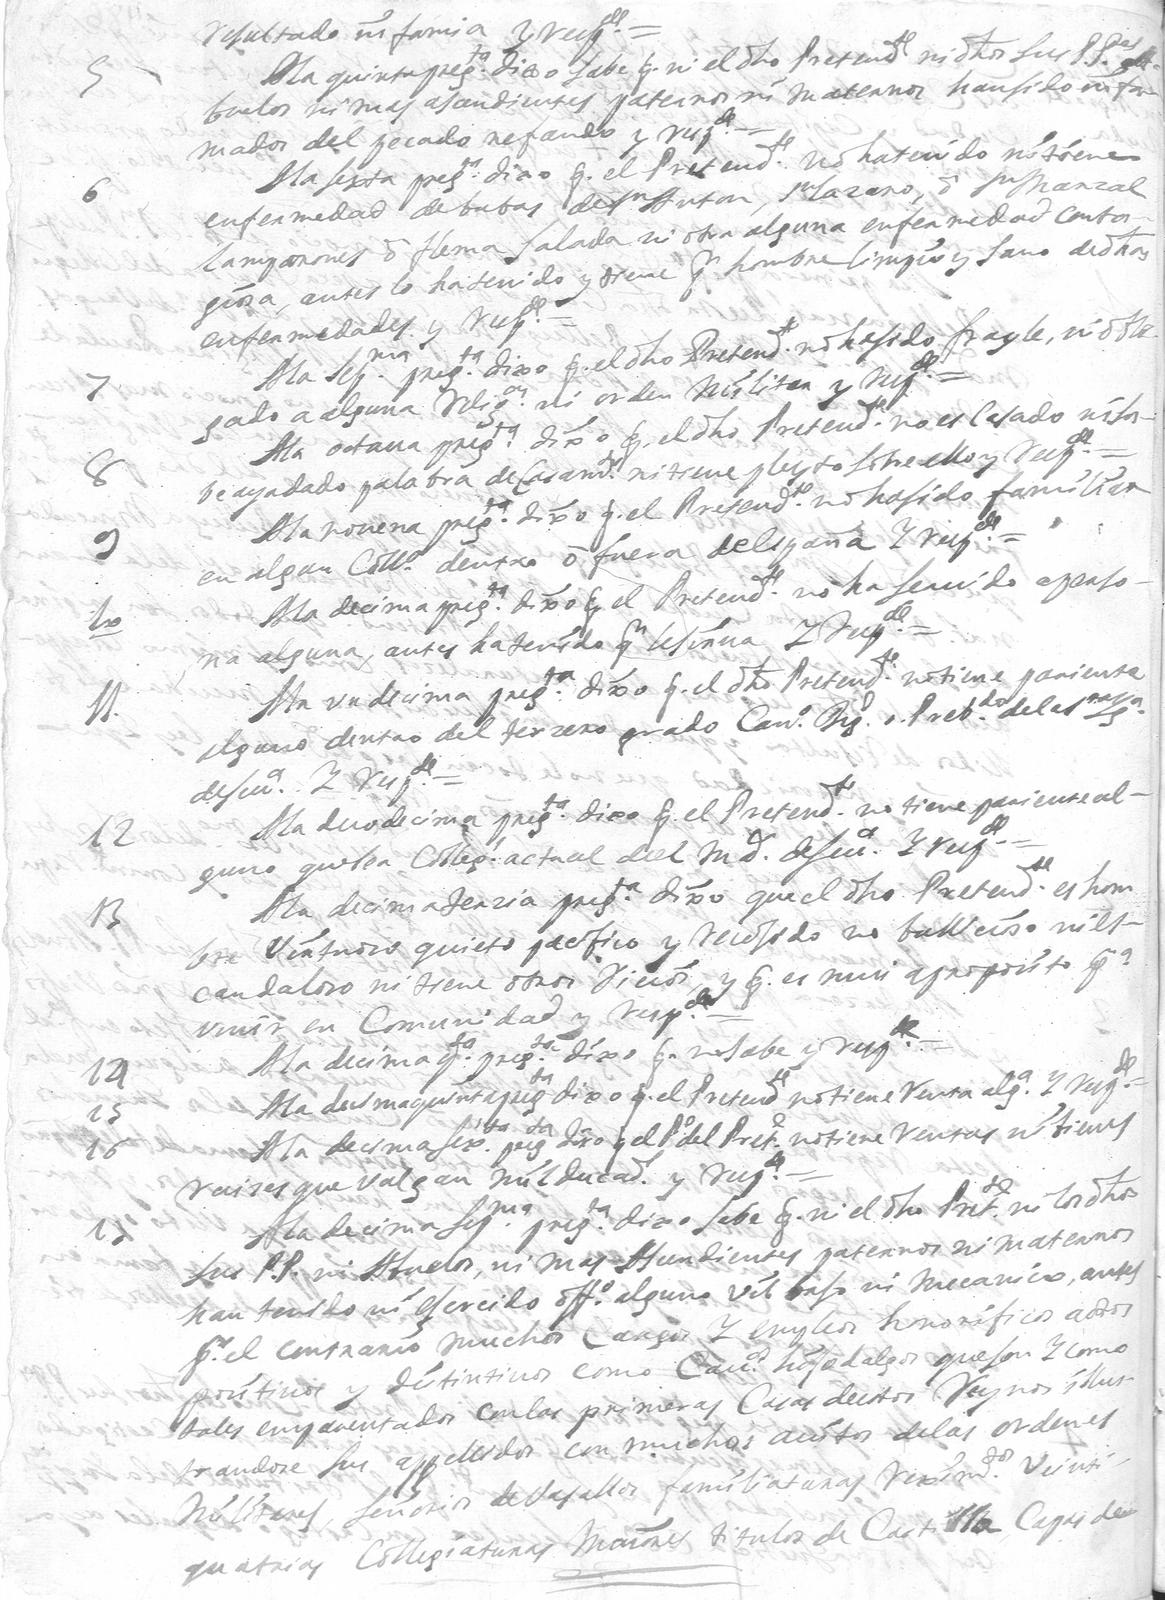 resultado infamia y resp.de =
5 A la quinta preg.ta dixo sabe q. ni el dho Pretend.te ni dhos sus P.P.es Ab-
buelos ni mas asendientes paternos ni maternos han sido infa-
mados del pecado nefando y resp.de =
6 A la sexta preg.ta dixo q. el Pretend.te no ha tenido ni tiene
enfermedad de bubas de Sn Anton, Sn Lazaro, o Sn Marzal
lamparones o flema salada ni otra alguna enfermedad conta-
giosa, antes lo ha tenido y tiene p.r hombre limpio y sano de dhas
enfermedades y resp.de =
7 A la sep.ma preg.ta dixo q. el dho Pretend.te no ha sido frayle, ni obli-
gado a alguna Relig.on ni orden Militar y resp.de =
8 A la octaua preg.ta dixo q. el dho Pretend.te no es Casado ni sa-
be aya dado palabra de Casam.to ni tiene pleyto sobre ello y resp.de =
9 A la nouena preg.ta dixo q. el Pretend.te no ha sido familiar
en algun Coll.o dentro o fuera de España Y resp.de =
10 A la decima preg.ta dixo q. el Pretend.te no ha seruido a perso-
na alguna, antes ha tenido q.n le sirua Y resp.de =
11. A la vndecima preg.ta dixo q. el dho Pretend.te no tiene pariente
alguno dentro del terzero grado Can.o Dig.d o Preb.do de la S.ta Ig.a
de Seu.a Y resp.de =
12 A la duodecima preg.ta dixo q. el Pretend.te no tiene pariente al-
guno que sea Colleg.l actual del M.r de Seu.a Y resp.de =
13 A la decima terzia preg.ta dixo que el dho Pretend.te es hom
bre virtuoso quieto pacifico y recojido no bullicioso ni es-
candaloso ni tiene otros vicios, y q. es mui aproposito p.a
viuir en Comunidad y resp.de =
14 A la decima q.ta preg.ta dixo q. no sabe y resp.de =
15 A la desimaquinta preg.ta dixo q. el Pretend.te no tiene Renta alg.a Y resp.de =
16 A la decima sex.ta preg.ta dixo q. el P.e del Pret.te no tiene Rentas ni bienes
raises que valgan mil ducad.s y resp.de =
17 A la decima sep.ma preg.ta dixo sabe q. ni el dho Pret.te ni los dhos
sus P.P. ni Abuelos, ni mas Asendientes paternos ni maternos
han tenido ni ejercido off.o alguno vil bajo ni mecanico, antes
p.r el contrario muchos Cargos Y empleos honorificos actos
positiuos y distintiuos como Cau.os hijosdalgo que son Y como
tales emparentados con las primeras Casas destos Reynos illus-
trandose sus appellidos con muchos auitos de las ordenes
Militares, señorios de Vasallos familiaturas Reximd.os Veinti-
quatrias Collegiaturas Maiores titulos de Castilla Casas de